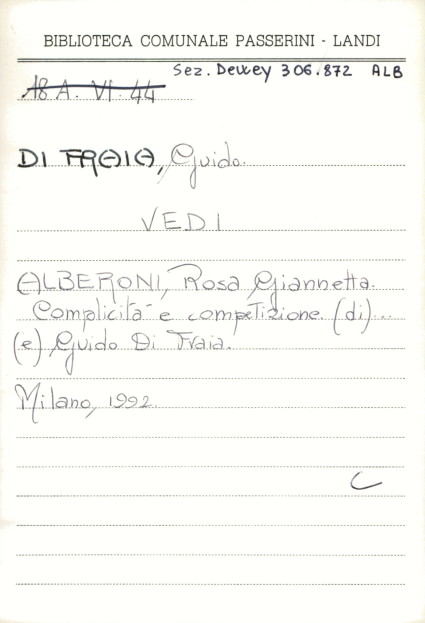 BIBLIOTECA COMUNALE PASSERINI - LANDI
Sez. Dewey 306.872 ALB
18 A. VI. 44
DI FRAIA, Guido.
VEDI
ALBERONI, Rosa Giannetta.
Complicità e competizione. (di)...
(e) Guido Di Fraia.
Milano, 1992.
C